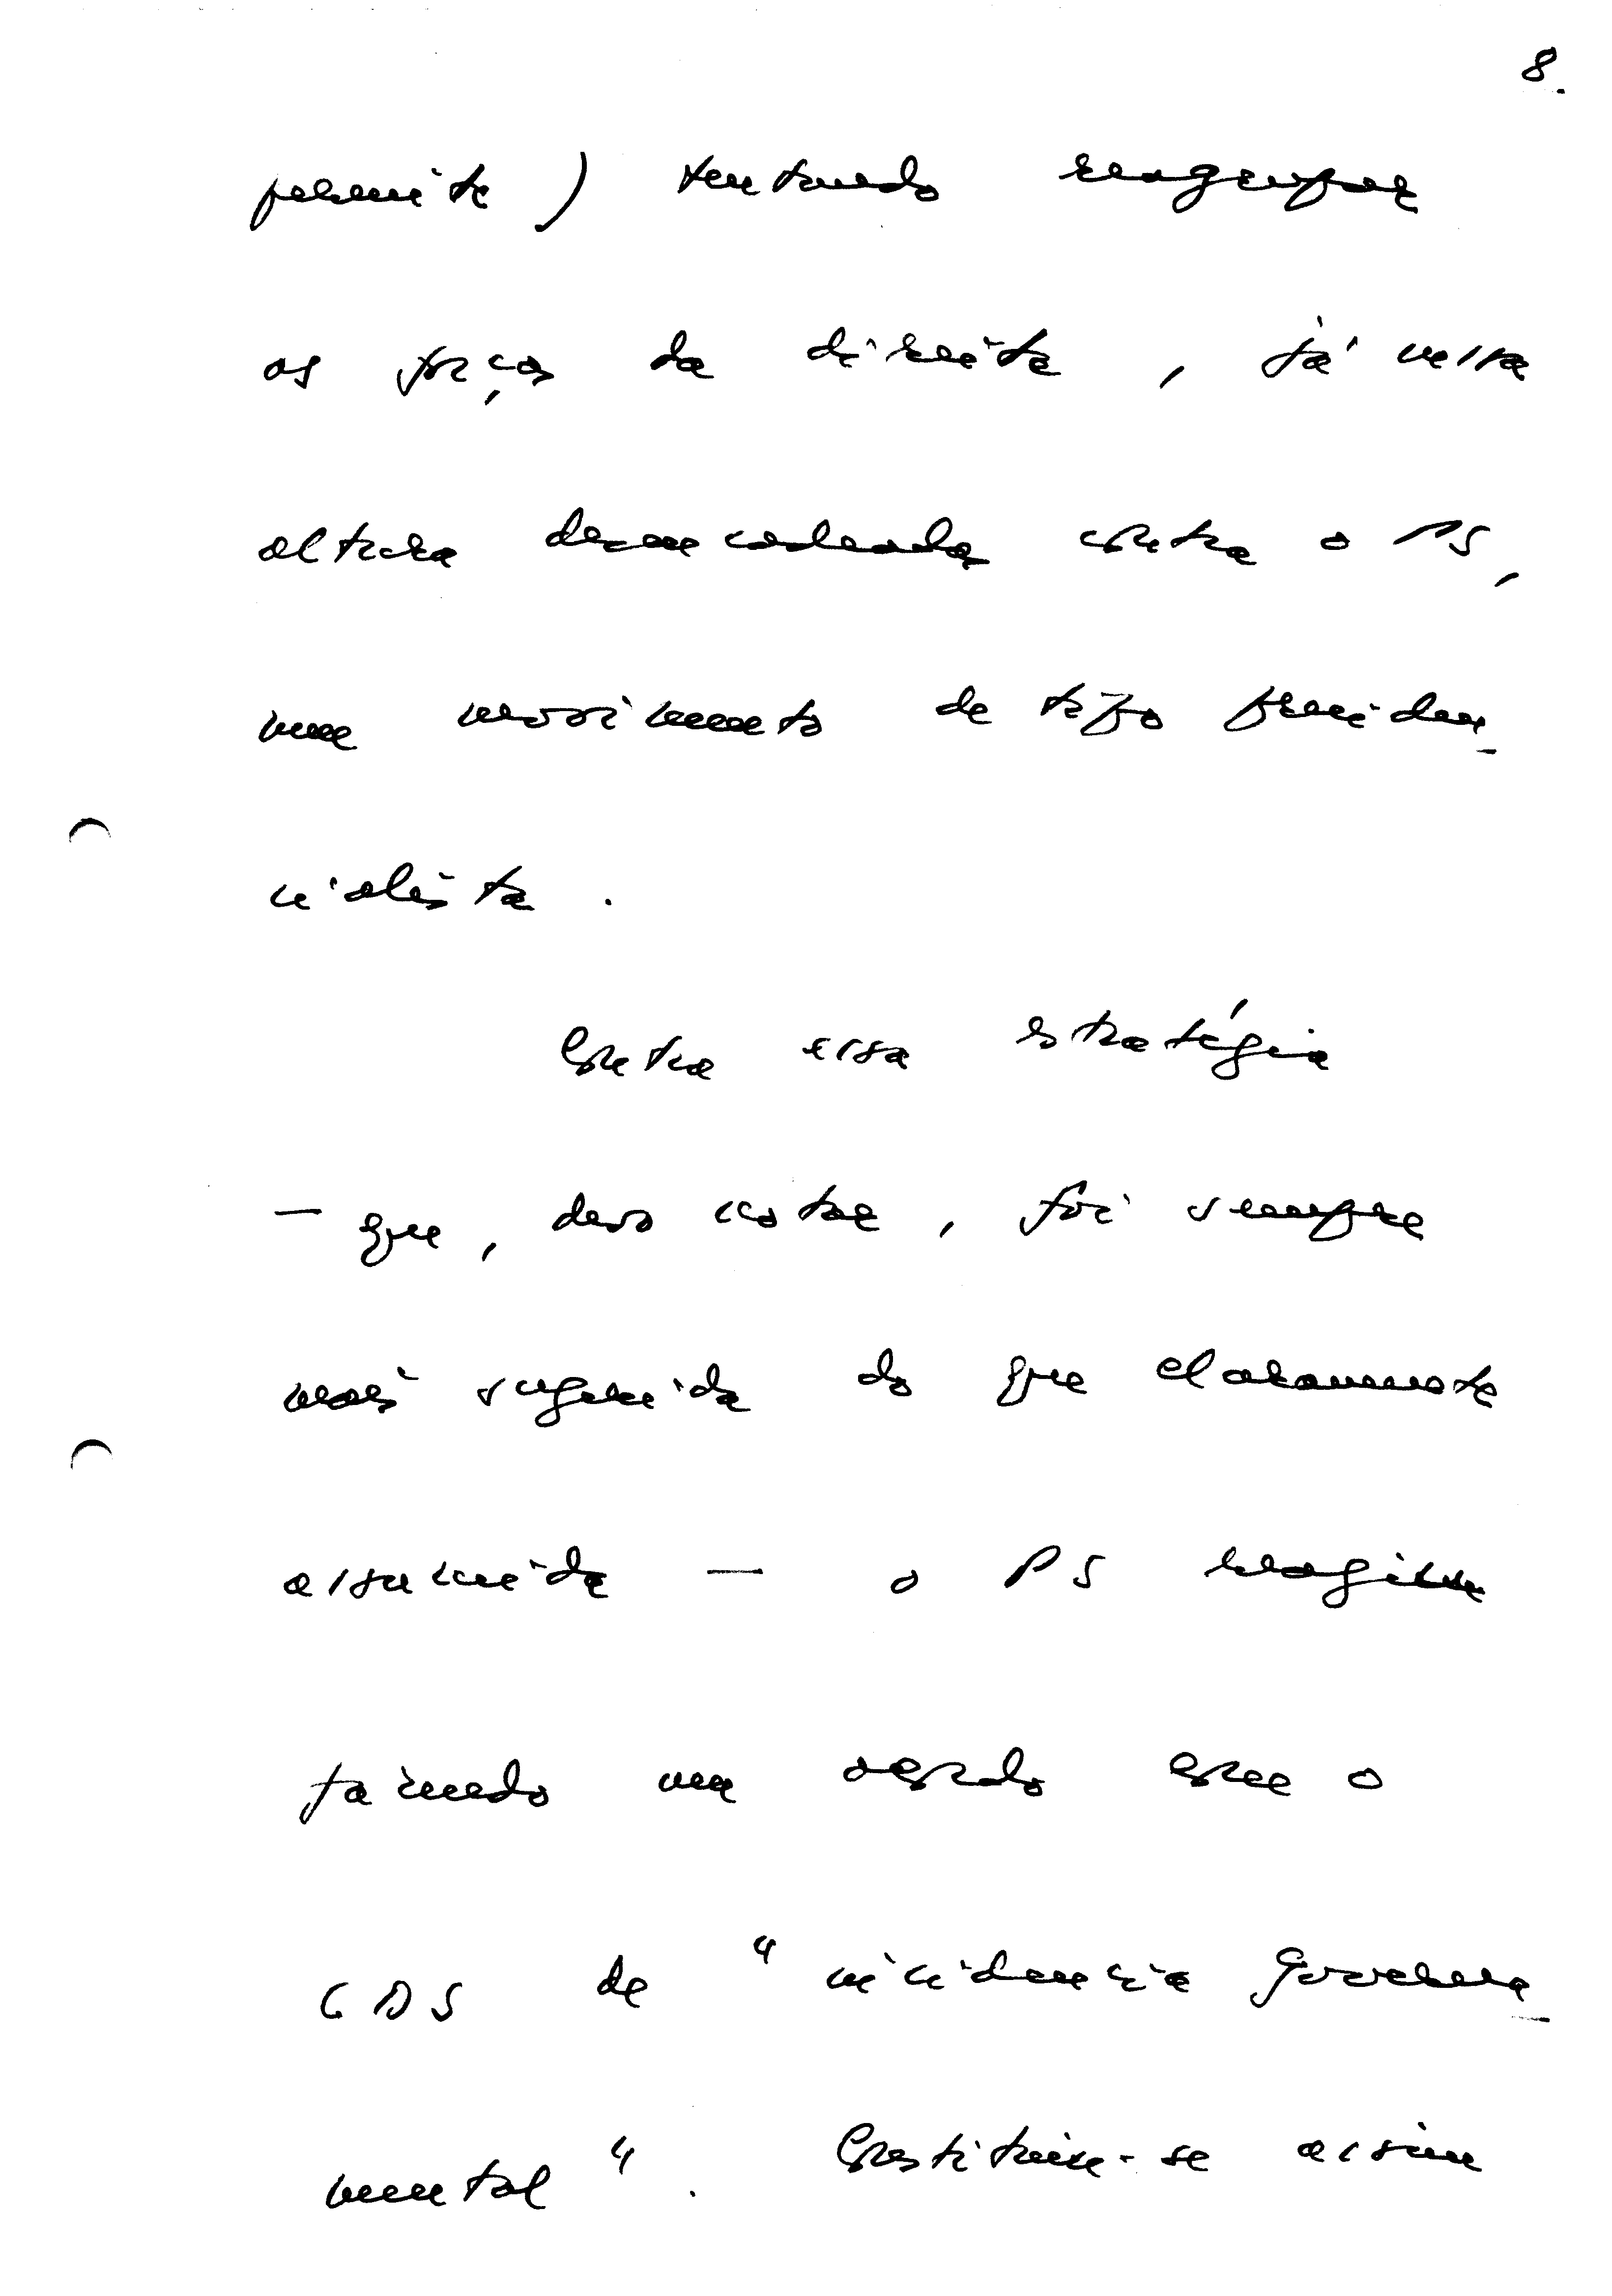 8.
permite) tentando reagrupar
as forças da direita, já nessa
altura desencadeada contra o PS,
num movimento de tipo presiden-
cialista.
Contra essa estratégia
— que, deso notar, foi sempre
mais sugerida do que claramente
assumida — o PS reagiu
fazendo um acordo com o
CDS de "incidência governa-
mental". Constituiu-se assim